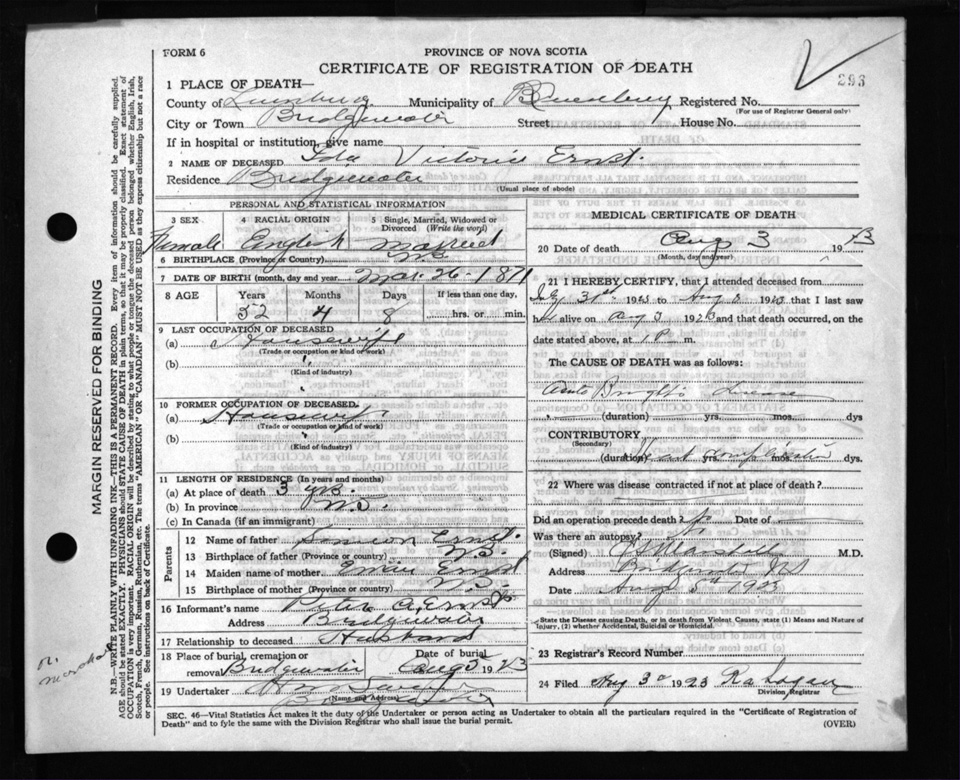 FORM 6
PROVINCE OF NOVA SCOTIA
CERTIFICATE OF REGISTRATION OF DEATH
293
1 PLACE OF DEATH—
County of Lunenburg Municipality of Registered No.
(For use of Registrar General only)
City or Town Bridgewater Street House No.
If in hospital or institution, give name
2 NAME OF DECEASED Ida Victoria Ernst.
Residence Bridgewater
(Usual place of abode)
PERSONAL AND STATISTICAL INFORMATION
3 SEX 4 RACIAL ORIGIN 5 Single, Married, Widowed or Divorced (Write the word)
Female English Married
6 BIRTHPLACE (Province or Country) N.S.
7 DATE OF BIRTH (month, day and year) Mar. 26-1871
8 AGE Years Months Days If less than one day,
52 4 8 hrs. or min.
9 LAST OCCUPATION OF DECEASED
(a) Housewife
(Trade or occupation or kind of work)
(b)
(Kind of industry)
10 FORMER OCCUPATION OF DECEASED
(a) Housewife
(Trade or occupation or kind of work)
(b)
(Kind of industry)
11 LENGTH OF RESIDENCE (In years and months)
(a) At place of death 3 yrs.
(b) In province
(c) In Canada (if an immigrant)
Parents
12 Name of father Simeon Ernst.
13 Birthplace of father (Province or country) N.S.
14 Maiden name of mother Ernst
15 Birthplace of mother (Province or country) N.S.
16 Informant's name Peter A. Ernst
Address Bridgewater
17 Relationship to deceased Husband
18 Place of burial, cremation or removal Bridgewater Date of burial Aug 5 1923
19 Undertaker
Name and Address
MEDICAL CERTIFICATE OF DEATH
20 Date of death Aug 3 1923
(Month, day and year)
21 I HEREBY CERTIFY, that I attended deceased from
July 31st 1923 to Aug 3 1923 that I last saw
her alive on Aug 3 1923 and that death occurred, on the
date stated above, at 1 P m.
The CAUSE OF DEATH was as follows:
Acute Bright's disease
(duration) yrs. mos. dys
CONTRIBUTORY
(Secondary)
(duration) Heart complication yrs. mos. dys.
22 Where was disease contracted if not at place of death?
Did an operation precede death? No Date of
Was there an autopsy?
(Signed) Marshall M.D.
Address Bridgewater NS
Date Aug 1923
State the Disease causing Death, or in death from Violent Causes, state (1) Means and Nature of
Injury, (2) whether Accidental, Suicidal or Homicidal.
23 Registrar's Record Number
24 Filed Aug 3d 1923
Division Registrar
SEC. 46—Vital Statistics Act makes it the duty of the Undertaker or person acting as Undertaker to obtain all the particulars required in the "Certificate of Registration of
Death" and to fyle the same with the Division Registrar who shall issue the burial permit.
(OVER)
MARGIN RESERVED FOR BINDING
N.B.—WRITE PLAINLY WITH UNFADING INK—THIS IS A PERMANENT RECORD. Every item of information should be carefully supplied.
AGE should be stated EXACTLY. PHYSICIANS should STATE CAUSE OF DEATH in plain terms, so that it may be properly classified. Exact statement of
OCCUPATION is very important. RACIAL ORIGIN will be described by stating to what people or tongue the deceased person belonged whether English, Irish,
Scotch, French, German, Russian, Ruthenian, etc. The terms "AMERICAN" OR "CANADIAN" MUST NOT BE USED as they express citizenship but not a race
or people. See instructions on back of Certificate.